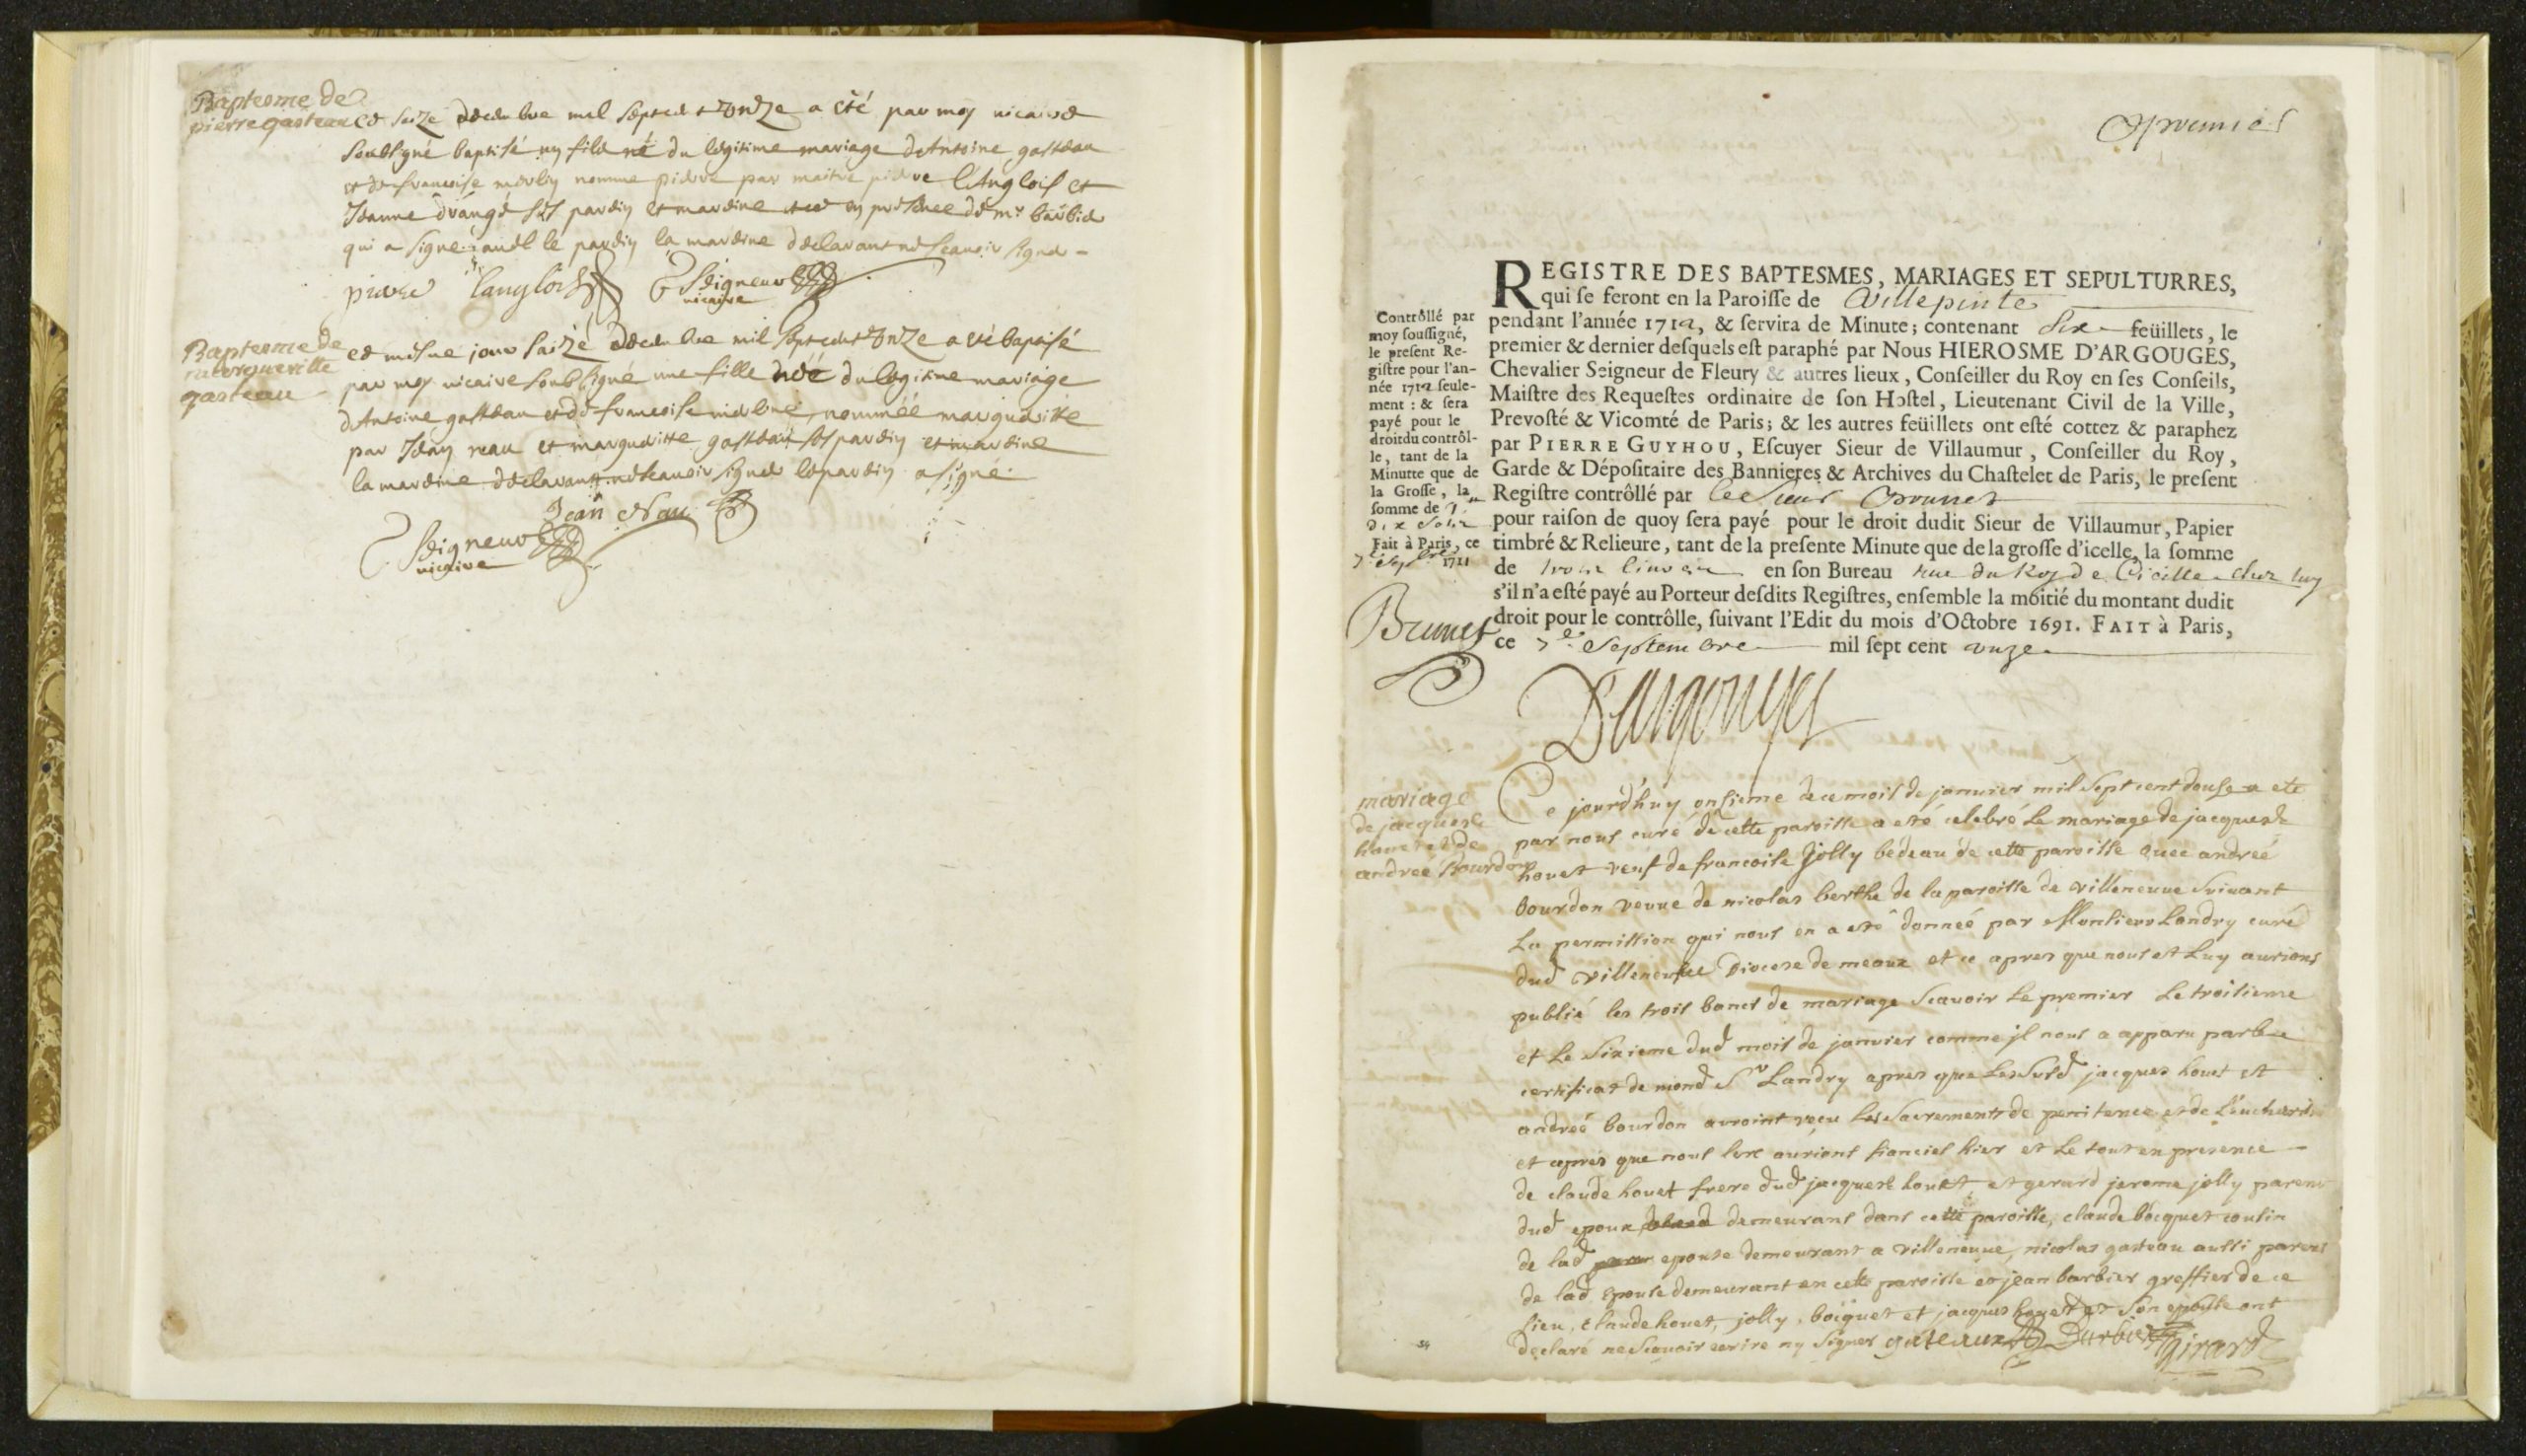 Baptesme de
pierre gasteau
ce saize decembre mil septcent onze a été par moy vicaire
soubsigné baptisé un fils né du légitime mariage d'Antoine gasteau
et de francoise merlin nomme pierre par maitre pierre l'Anglois et
Jeanne drangé ses parain et maraine et ce en présence de mr barbié
qui a signé avec le parain la maraine declarant ne scavoir signer -
pierre langlois Seigneur
vicaire
Baptesme de
margueritte
gasteau
ce mesme jour saize decembre mil septcent onze a été baptisé
par moy vicaire soubsigné une fille née du légitime mariage
d'Antoine gasteau et de francoise merlin nommée marguerite
par Jean nau et marguerite gasteau ses parain et maraine
la maraine declarant ne scavoir signer le parain a signé
Jean Nau
Seigneur
vicaire
premier
REGISTRE DES BAPTESMES, MARIAGES ET SEPULTURRES,
qui se feront en la Paroisse de Villepinte
pendant l'année 1712, & servira de Minute; contenant Six feüillets, le
premier & dernier desquels est paraphé par Nous HIEROSME D'ARGOUGES,
Chevalier Seigneur de Fleury & autres lieux, Conseiller du Roy en ses Conseils,
Maistre des Requestes ordinaire de son Hostel, Lieutenant Civil de la Ville,
Prevosté & Vicomté de Paris; & les autres feüillets ont esté cottez & paraphez
par PIERRE GUYHOU, Escuyer Sieur de Villaumur, Conseiller du Roy,
Garde & Dépositaire des Bannieres & Archives du Chastelet de Paris, le present
Registre contrôllé par le Sieur Brunet
pour raison de quoy sera payé pour le droit dudit Sieur de Villaumur, Papier
timbré & Relieure, tant de la presente Minute que de la grosse d'icelle, la somme
de trois livres en son Bureau rue du Roy de Cicille chez luy
s'il n'a esté payé au Porteur desdits Registres, ensemble la moitié du montant dudit
droit pour le contrôlle, suivant l'Edit du mois d'Octobre 1691. FAIT à Paris,
ce 7e Septembre mil sept cent onze
Contrôllé par
moy soussigné,
le present Re-
gistre pour l'an-
née 1712 seule-
ment : & sera
payé pour le
droit du contrôl-
le, tant de la
Minutte que de
la Grosse, la
somme de
dix solz
Fait à Paris, ce
7e Septbre 1711
Brunet
Dargouges
mariage
de jacques
houet et de
andreé Bourdon
Ce jourd'huy onsieme de ce mois de janvier mil sept cent douse a ete
par nous curé de cette paroisse a esté celebré le mariage de jacques
houet veuf de francoise jolly bedeau de cette paroisse avec andreé
bourdon veuve de nicolas berthe de la paroisse de villeneuve suivant
la permission qui nous en a esté donneé par Monsieur Landry curé
dud villeneuve Diocese de meaux et ce apres que nous et luy aurions
publié les trois bancs de mariage scavoir le premier le troisieme
et le sixieme dud mois de janvier comme jl nous a apparu par le
certificat de mond Sr Landry apres que les susd jacques houet et
andreé bourdon auroint reçu les sacrements de penitence et de l'eucharis
et apres que nous les aurions fiancies hier et le tout en presence
de claude houet frere dud jacques houet et gerard jerome jolly parent
dud epoux demeurans dans cette paroisse, claude bocquet cousin
de lad epouse demeurant a villeneuve, nicolas gasteau aussi parent
de lad epouse demeurant en cette paroisse et jean barbier greffier de ce
lieu, claude houet, jolly, bocquet et jacques houet et son epouse ont
declaré ne scavoir ecrire ny signer gateaux Barbier girard
54